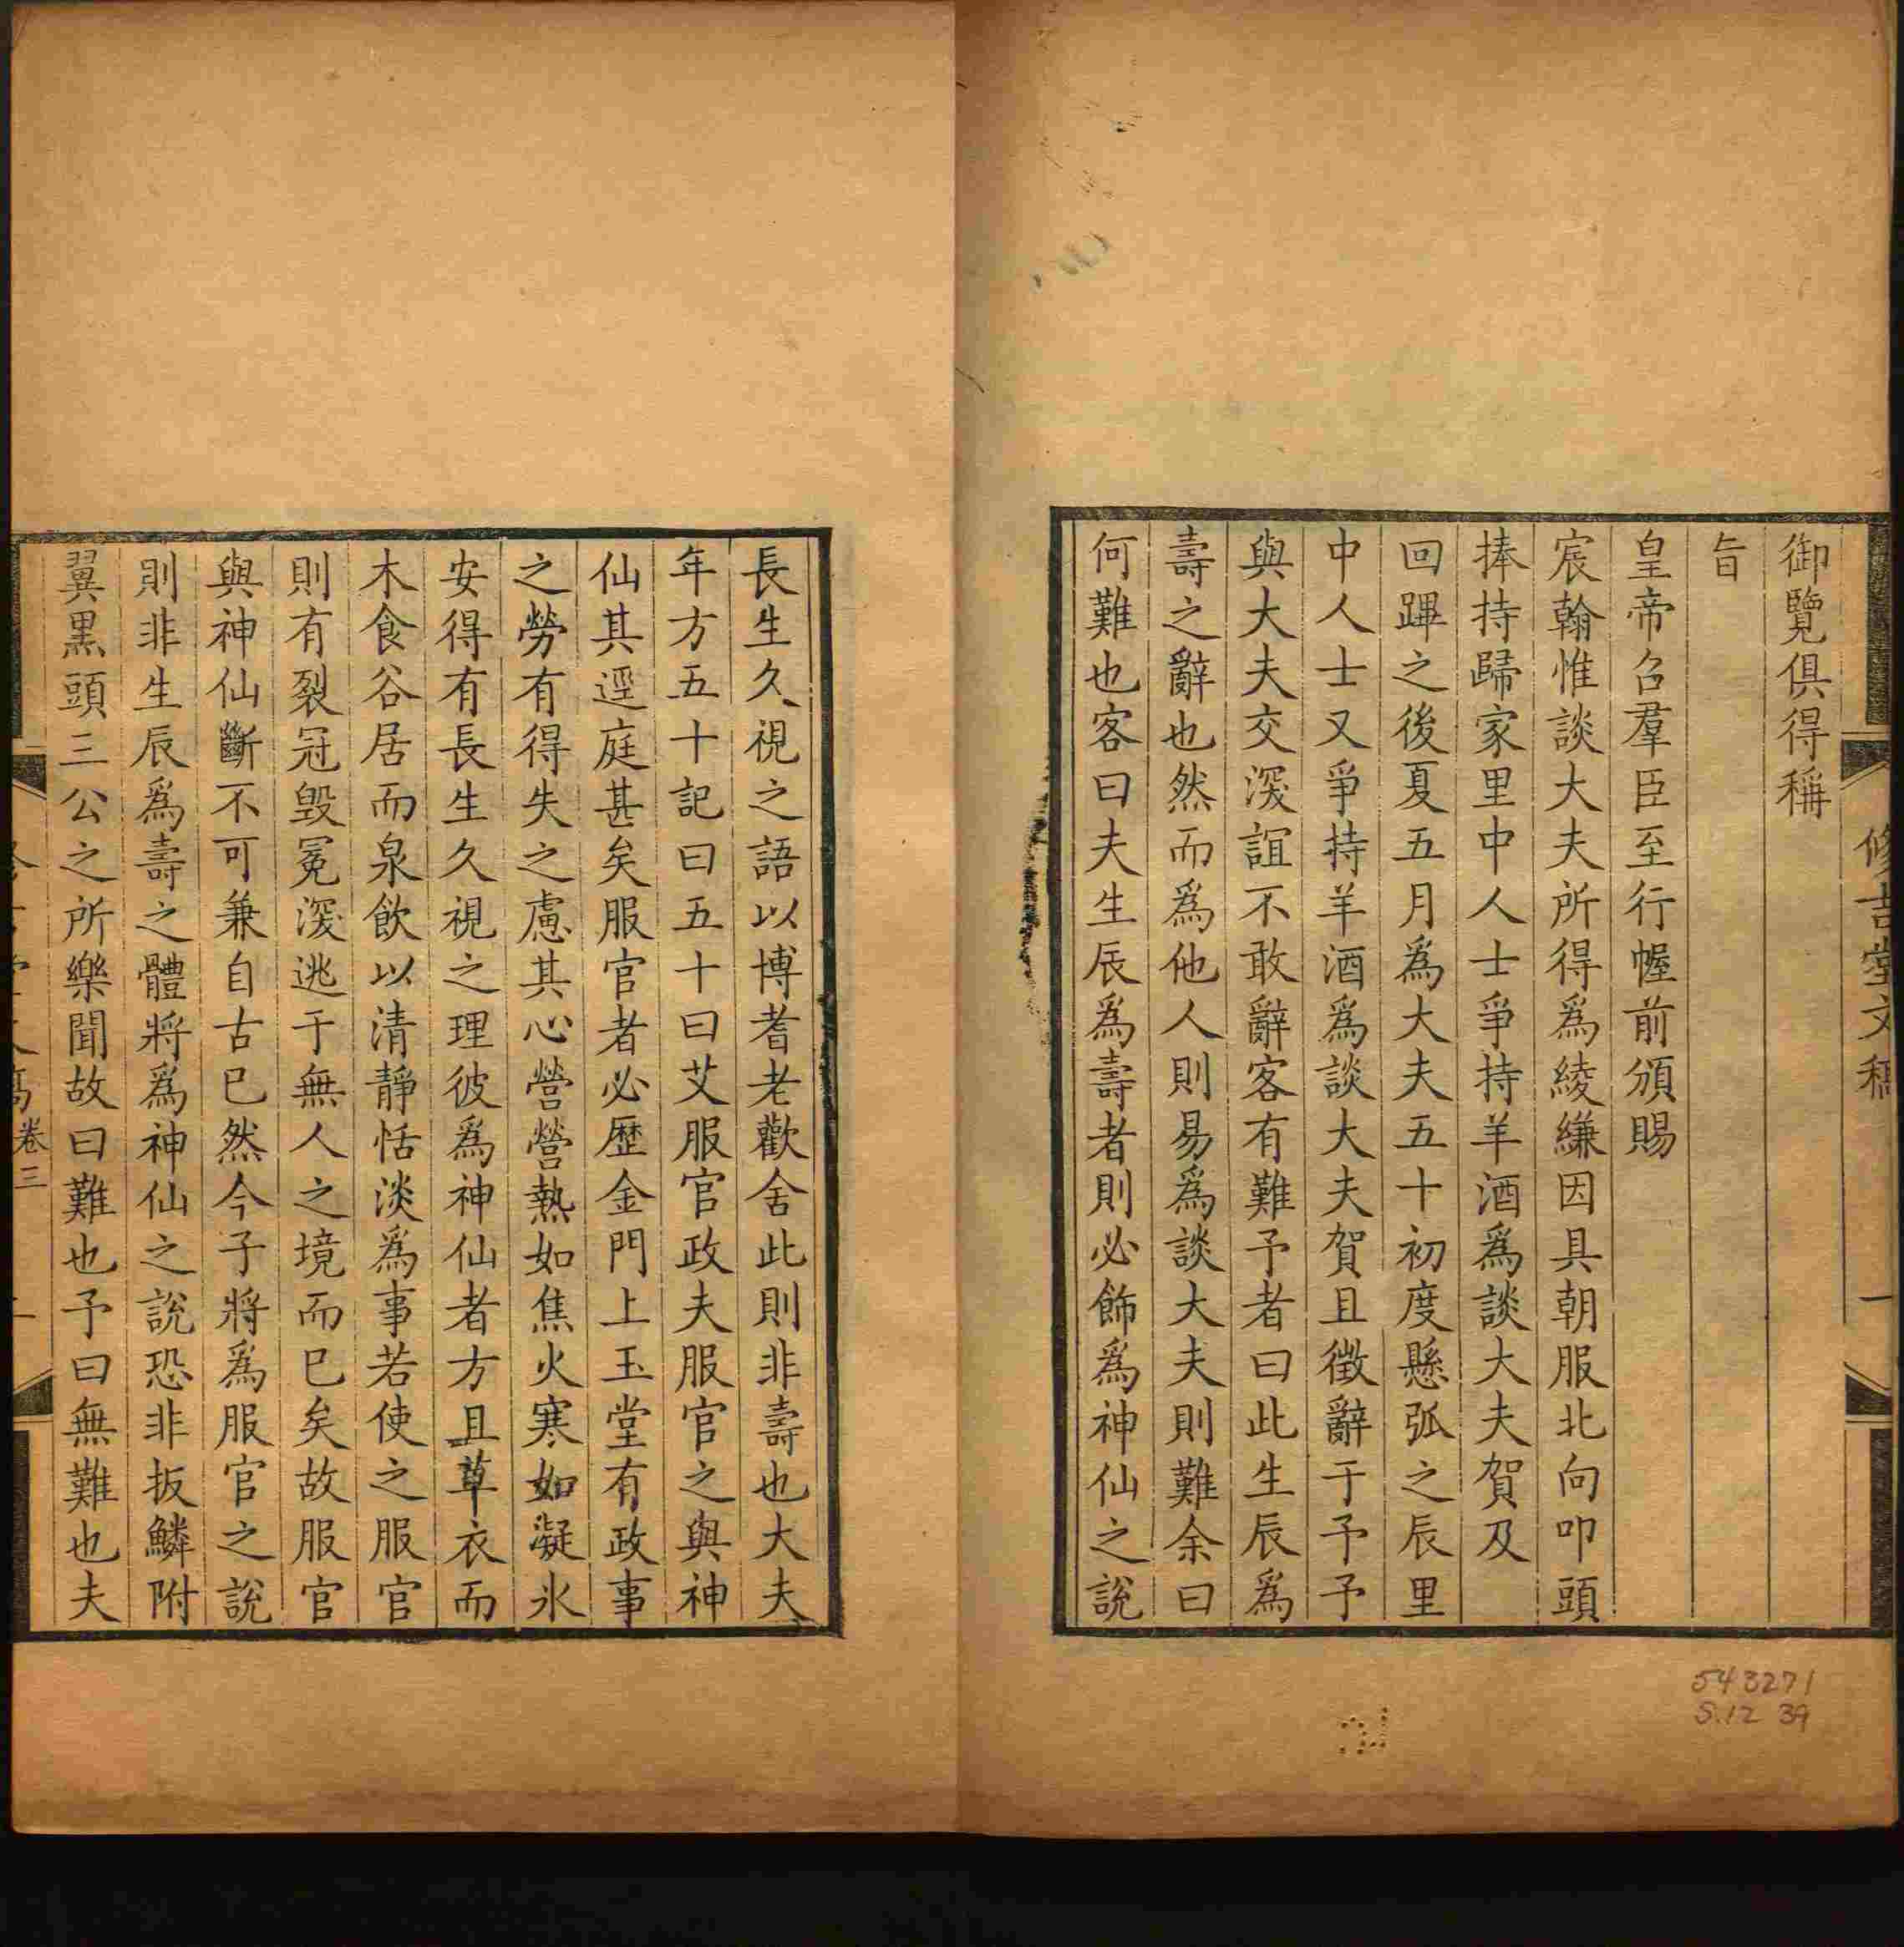 修吉堂文稿
一
御覽俱得稱
旨
皇帝召羣臣至行幄前頒賜
宸翰惟談大夫所得為綾縑因具朝服北向叩頭
捧持歸家里中人士爭持羊酒爲談大夫賀及
回蹕之後夏五月爲大夫五十初度懸弧之辰里
中人士又爭持羊酒爲談大夫賀且徵辭于予予
與大夫交深誼不敢辭客有難予者曰此生辰爲
壽之辭也然而爲他人則易爲談大夫則難余曰
何難也客曰夫生辰爲壽者則必飾爲神仙之說
長生久視之語以博耆老歡舍此則非壽也大夫
年方五十記曰五十曰艾服官政夫服官之與神
仙其逕庭甚矣服官者必歷金門上玉堂有政事
之勞有得失之慮其心營營熱如焦火寒如凝氷
安得有長生久視之理彼爲神仙者方且草衣而
木食谷居而泉飲以清靜恬淡爲事若使之服官
則有裂冠毁冕深逃于無人之境而已矣故服官
與神仙斷不可兼自古已然今子將爲服官之說
則非生辰爲壽之體將爲神仙之說恐非扳鱗附
翼黑頭三公之所樂聞故曰難也予曰無難也夫
卷三